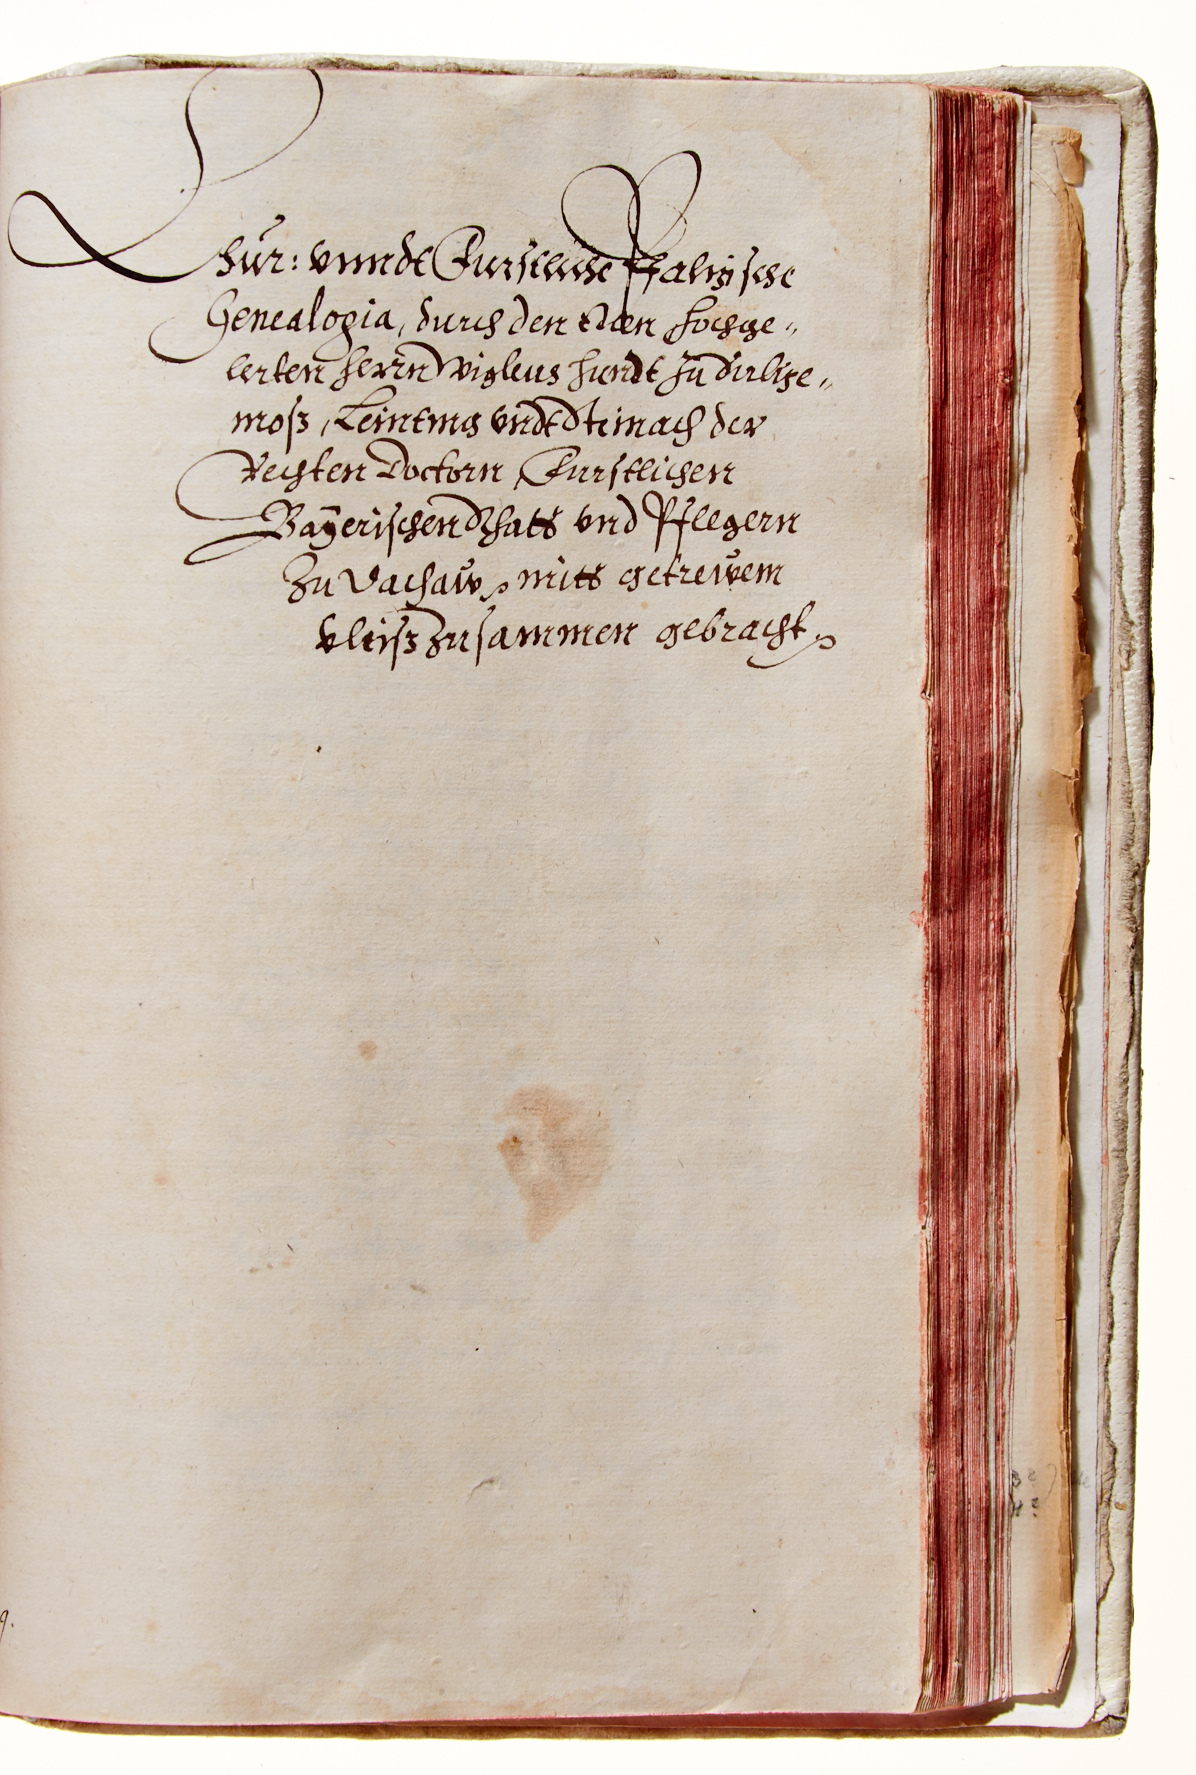 Chür: vnndt Furstliche Pfaltzische
Genealogia, durch den Edlen hochge„
lerten herrn Wigleus hundt zu Sultze„
moß, Leinting vndt Steinach der
Rechten Doctorn, Furstlichen
Bayerischen Rhatt vnd Pflegern
Zu Dachaw, mitt getrewem
vleiß zusammen gebracht